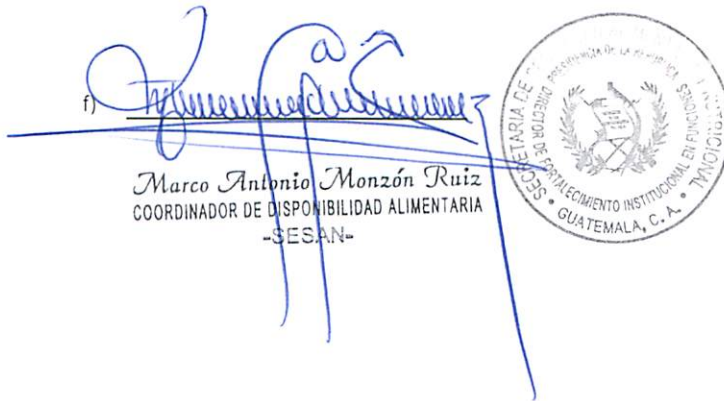 f)
Marco Antonio Monzón Ruiz
COORDINADOR DE DISPONIBILIDAD ALIMENTARIA
-SESAN-
SECRETARIA DE
NUTRICIONAL
PRESIDENCIA DE LA REPUBLICA
DIRECTOR DE FORTALECIMIENTO INSTITUCIONAL EN FUNCIONES
GUATEMALA, C. A.